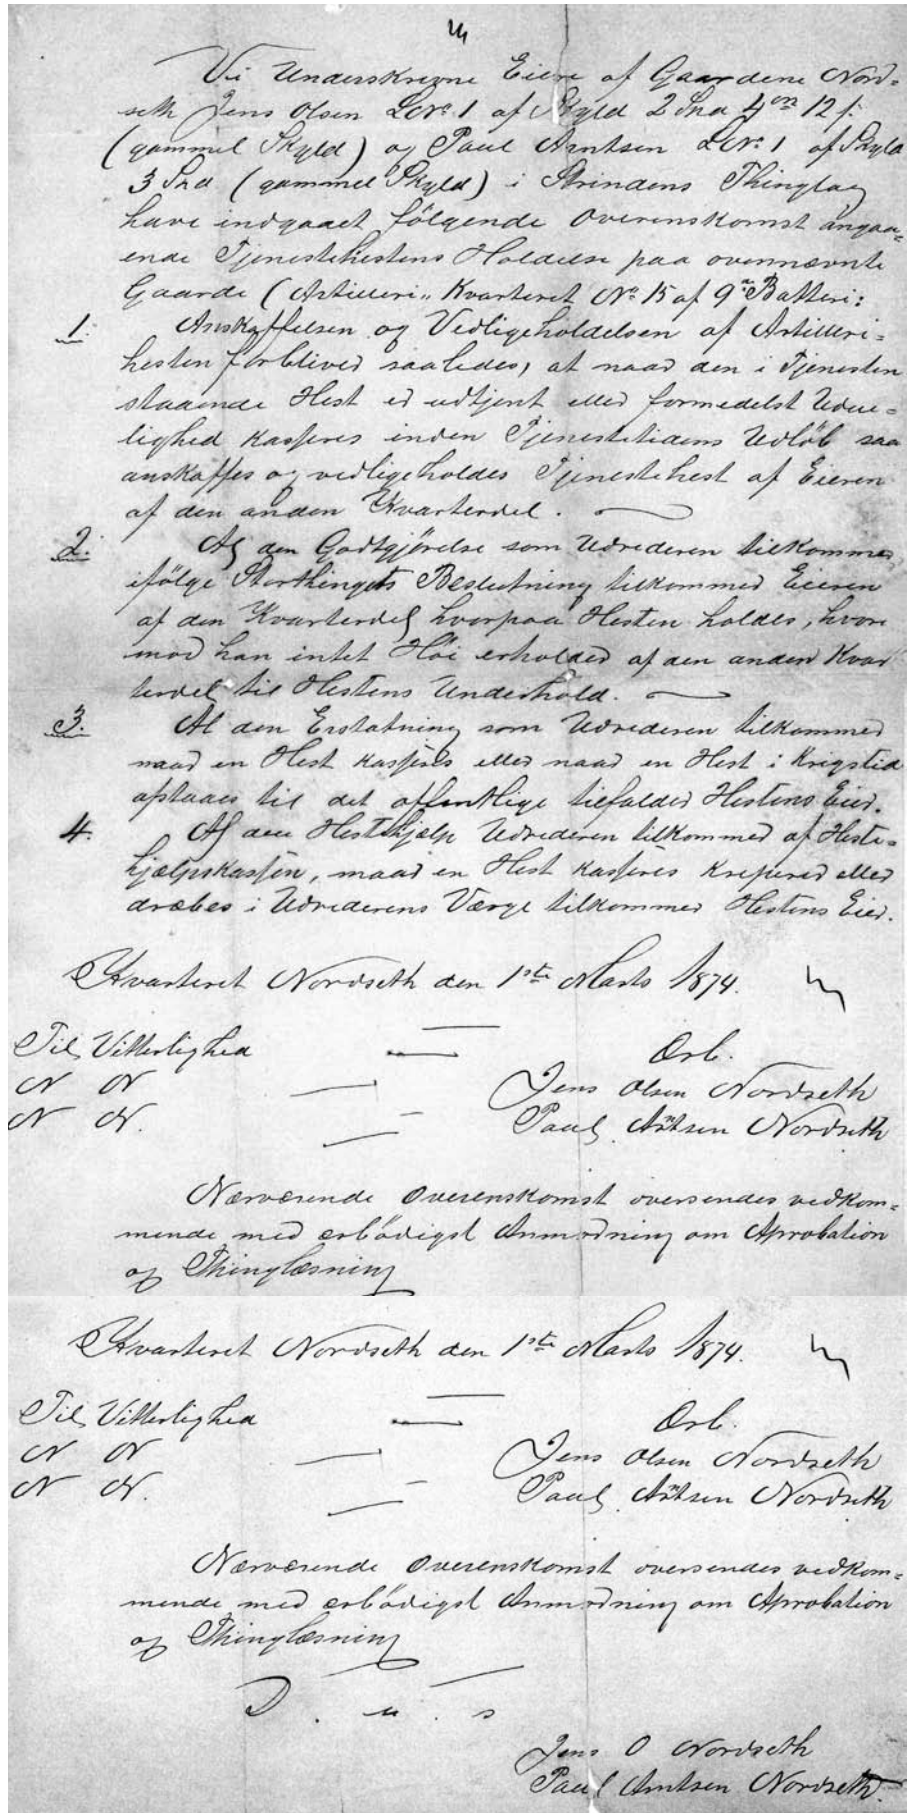 Vi Underskrevne Eiere af Gaardene Nord-
seth Jens Olsen LNo. 1 af Skyld 2 Snd 4 ort 12 f.
(gammel Skyld) og Paul Arntsen LNo. 1 af Skyld
3 Snd (gammel Skyld) i Strindens Thinglag
have indgaaet følgende Overenskomst angaa=
ende Tjenestehestens Holdelse paa ovennævnte
Gaarde (Artilleri „ Kvarteret No. 15 af 9de Batteri:
1. Anskaffelsen og Vedligeholdelsen af Artilleri=
hesten forbliver saaledes, at naar den i Tjenesten
staaende Hest er udtjent eller formedelst Udue=
lighed kasseres inden Tjenestetidens Udløb saa
anskaffes og vedligeholdes Tjenestehest af Eieren
af den anden Kvarterdel.
2. Al den Godtgjørelse som Udrederen tilkommer
ifølge Storthingets Beslutning tilkommer Eieren
af den Kvarterdel hvorpaa Hesten holdes, hvore
mod han intet Høi erholder af den anden Kvar
terdel til Hestens Underhold.
3. Al den Erstatning som Udrederen tilkommer
naar en Hest kasseres eller naar en Hest i Krigstid
afstaaes til det offentlige tilfalder Hestens Eier.
4. Al den Hestehjælp Udrederen tilkommer af Heste=
hjælpskassen, naar en Hest kasseres Kreperer eller
dræbes i Udrederens Værge tilkommer Hestens Eier.
Kvarteret Nordseth den 1ste Marts 1874.
Til Vitterlighed Ærb.
N N Jens Olsen Nordseth
N N. Paul Arntsen Nordseth
Nærværende Overenskomst oversendes vedkom=
mende med ærbødigst Anmodning om Aprobation
og Thinglæsning
Kvarteret Nordseth den 1ste Marts 1874.
Til Vitterlighed Ærb.
N N Jens Olsen Nordseth
N N. Paul Arntsen Nordseth
Nærværende Overenskomst oversendes vedkom=
mende med ærbødigst Anmodning om Aprobation
og Thinglæsning
D. u. s
Jens O Nordseth
Paul Arntsen Nordseth.